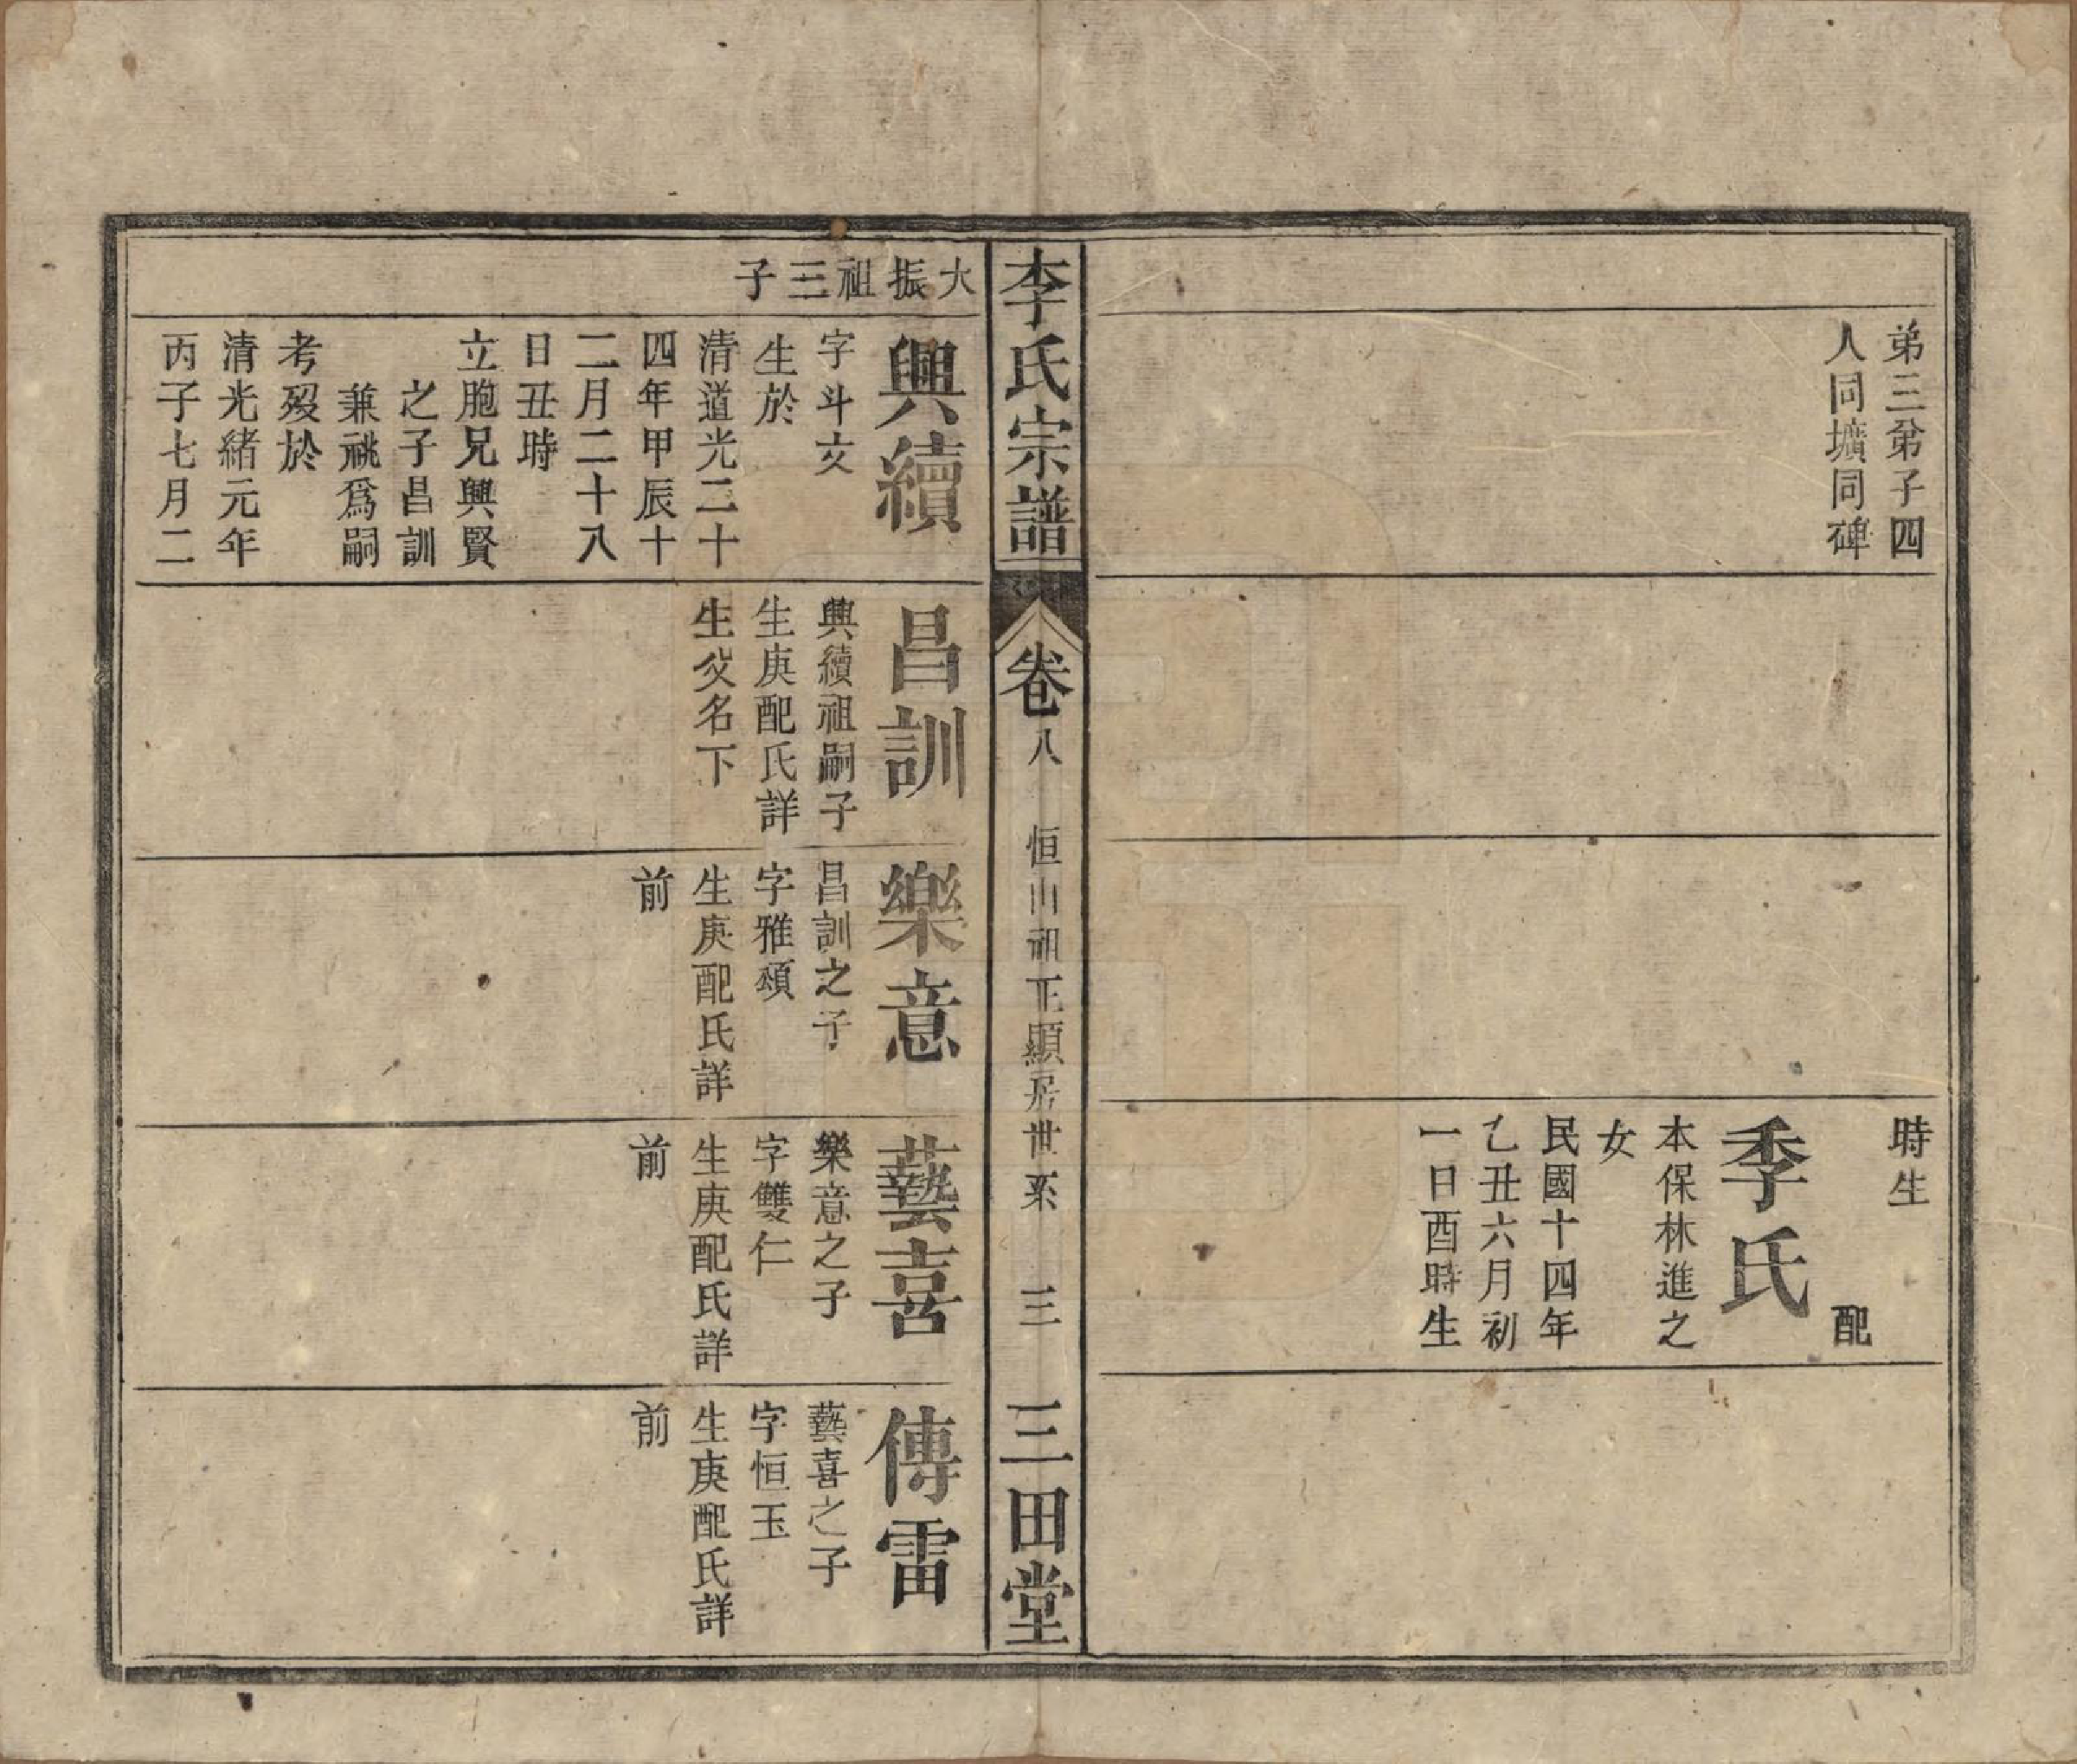 弟三弟子四
人同壙同碑
時生
配
季氏
本保林進之
女
民國十四年
乙丑六月初
一日酉時生
李氏宗譜
卷八
恒山祖正顯居世系
三
三田堂
大振祖三子
興續
字斗文
生於
清道光二十
四年甲辰十
二月二十八
日丑時
立胞兄興賢
之子昌訓
兼祧爲嗣
考歿於
清光緒元年
丙子七月二
昌訓
興續祖嗣子
生庚配氏詳
生父名下
樂意
昌訓之子
字雅頌
生庚配氏詳
前
藝喜
樂意之子
字雙仁
生庚配氏詳
前
傳雷
藝喜之子
字恒玉
生庚配氏詳
前